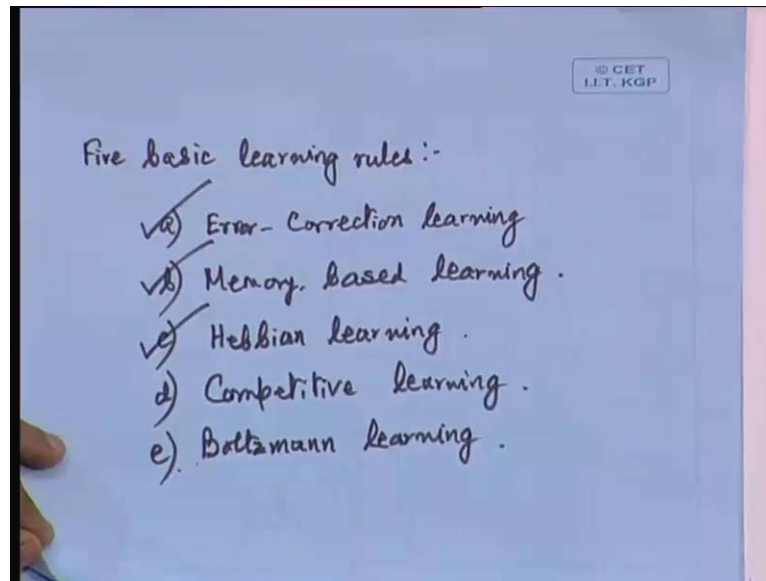 © CET
I.I.T. KGP
Five basic learning rules :-
a) Error-Correction learning
b) Memory. based learning .
c) Hebbian learning .
d) Competitive learning .
e) Boltzmann learning .